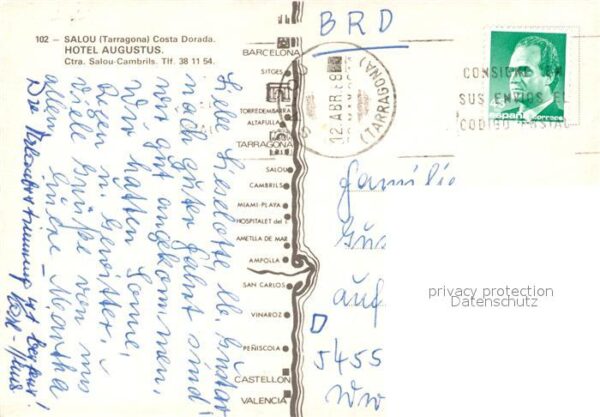 102 — SALOU (Tarragona) Costa Dorada.
HOTEL AUGUSTUS.
Ctra. Salou-Cambrils. Tlf. 38 11 54.
Liebe Lieselotte, lb. Günter
nach guter Fahrt sind
wir gut angekommen,
wir hatten Sonne,
Regen u. Gewitter,
viele Grüße von uns
allen
Martha
Die Urlaubsstimmung ist
BARCELONA
SITGES
TORREDEMBARRA
ALTAFULLA
TARRAGONA
SALOU
CAMBRILS
MIAMI-PLAYA
HOSPITALET del I.
AMETLLA DE MAR
AMPOLLA
SAN CARLOS
VINAROZ
PEÑISCOLA
CASTELLON
VALENCIA
BRD
12 ABR
(TARRAGONA)
CONSIGNE EN
SUS ENVIOS EL
CODIGO POSTAL
españa correos
Familie
Gü
auf
D
5455
privacy protection
Datenschutz